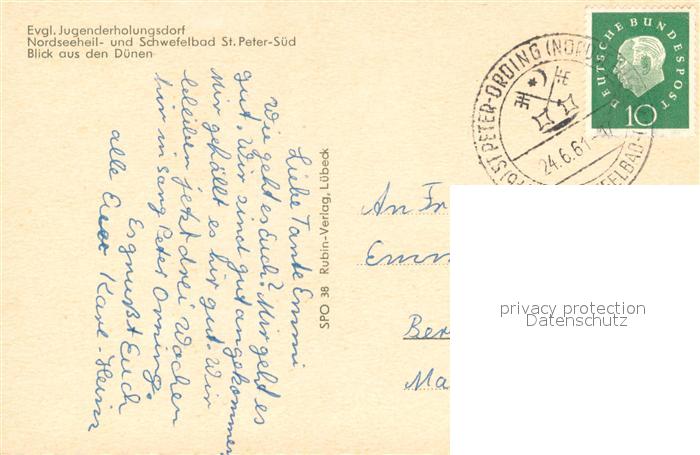 Evgl. Jugenderholungsdorf
Nordseeheil- und Schwefelbad St. Peter-Süd
Blick aus den Dünen
Liebe Tante Emmi
Wie geht es Euch? Mir geht es
gut. Wir sind gut angekommen,
Mir gefällt es hir gut. Wir
bleiben jetzt drei Wochen
hir in Sang Peter Orning.
Es grüßt Euch
alle Euer Karl-Heinz
SPO 38 Rubin-Verlag, Lübeck
ST PETER-ORDING (NORD
24.6.61
DEUTSCHE BUNDESPOST
10
An Fr
Emm
Ber
Ma
privacy protection
Datenschutz